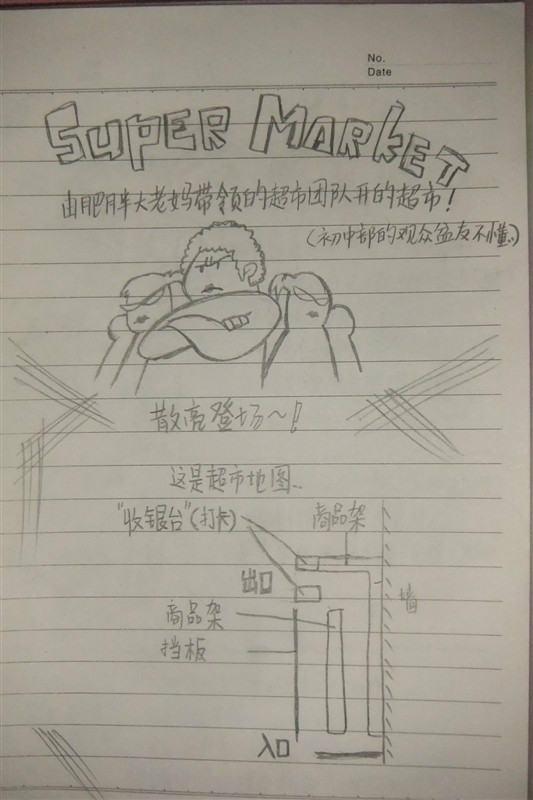 No.
Date
SUPER MARKET
由肥胖大老妈带领的超市团队开的超市！
(初中部的观众盆友不懂..)
散亮登场～！
这是超市地图..
"收银台"(打卡)
商品架
出口
墙
商品架
挡板
入口